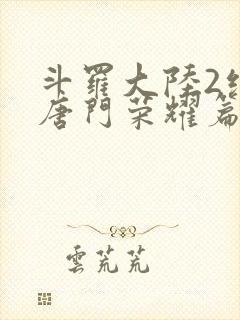 斗羅大陸2絕
唐門榮耀篇
雲荒荒